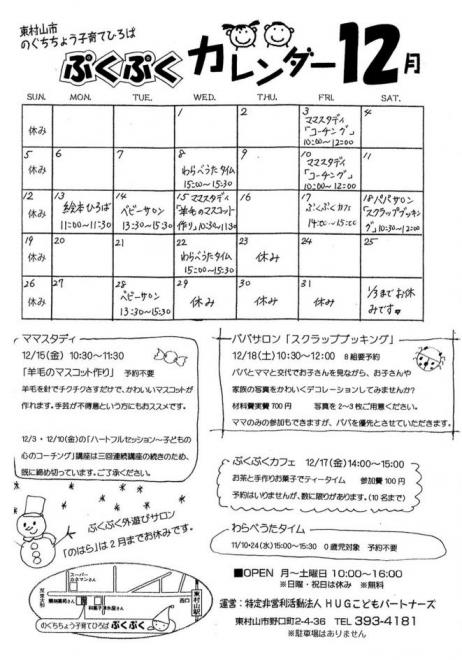 東村山市
のぐちちょう子育てひろば
ぷくぷく カレンダー 12月
SUN. MON. TUE. WED. THU. FRI. SAT.
休み
1
2
3 ママスタディ
「コーチング」
10:00〜12:00
4
5
休み
6
7
8
わらべうたタイム
15:00〜15:30
9
10
ママスタディ
「コーチング」
10:00〜12:00
11
12
休み
13
絵本ひろば
11:00〜11:30
14
ベビーサロン
13:30〜15:30
15 ママスタディ
「羊毛のマスコット
作り」10:30〜11:30
16
17
ぷくぷくカフェ
14:00〜15:00
18 パパサロン
「スクラップブッキン
グ」10:30〜12:00
19
休み
20
21
22
わらべうたタイム
15:00〜15:30
23
休み
24
25
26
休み
27
28
ベビーサロン
13:30〜15:30
29
休み
30
休み
31
休み
1/3までお休
みです
ママスタディ
12/15(金) 10:30〜11:30
「羊毛のマスコット作り」 予約不要
羊毛を針でチクチクさすだけで、かわいいマスコットが
作れます。手芸が不得意という方にもおススメです。
12/3・12/10(金)の「ハートフルセッション〜子どもの
心のコーチング」講座は三回連続講座の続きのため、
既に締め切っています。ご了承ください。
パパサロン「スクラップブッキング」
12/18(土)10:30〜12:00 8組要予約
パパとママと交代でお子さんを見ながら、お子さんや
家族の写真をかわいくデコレーションしてみませんか?
材料費実費700円 写真を2〜3枚ご用意ください。
ママのみの参加もできますが、パパを優先とさせていただきます。
ぷくぷくカフェ 12/17(金)14:00〜15:00
お茶と手作りお菓子でティータイム 参加費100円
予約はいりませんが、数に限りがあります。(10名まで)
ぷくぷく外遊びサロン
「のはら」は2月までお休みです。
わらべうたタイム
11/10・24(水)15:00〜15:30 0歳児対象 予約不要
スーパー
カネマンさん
東村山駅
西口
のぐちちょう子育てひろば ぷくぷく
■OPEN 月〜土曜日 10:00〜16:00
※日曜・祝日は休み ※無料
運営:特定非営利活動法人HUGこどもパートナーズ
東村山市野口町2-4-36 TEL 393-4181
※駐車場はありません